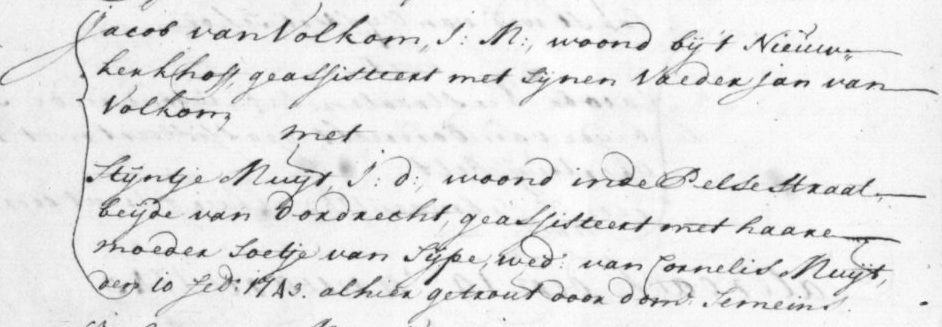 Jacob van Volkom, J: M:, woond bij 't Nieuw=
kerkhoff, geassisteert met sijnen Vaeder jan van
Volkom,
met
Stijntje Muijt, J: d:, woond inde Pelse straat,
beijde van Dordrecht, geassisteert met haare
moeder Soetje van Sijpe, wed: van Cornelis Muijt,
den 10 feb: 1743. alhier getrout door dom: Semeins.